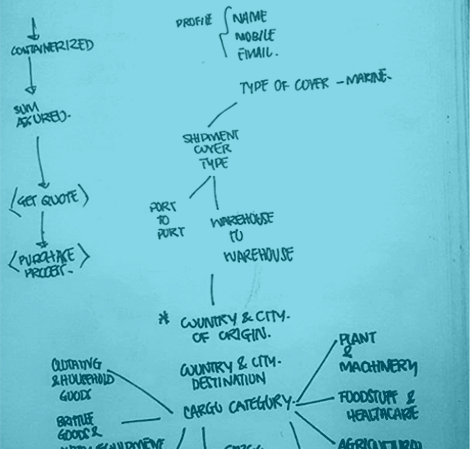 CONTAINERIZED
SUM
ASSURED.
<GET QUOTE>
<PURCHASE
PROCESS.
PROFILE
NAME
MOBILE
EMAIL.
TYPE OF COVER - MARINE.
SHIPMENT
COVER
TYPE
PORT
TO
PORT
WAREHOUSE
TO
WAREHOUSE
* COUNTRY & CITY.
OF ORIGIN.
COUNTRY & CITY.
DESTINATION
CARGO CATEGORY.
CLOTHING
& HOUSEHOLD
GOODS
BRITTLE
GOODS &
EQUIPMENT
PLANT
&
MACHINERY
FOODSTUFF &
HEALTHCARE
AGRICULTURAL